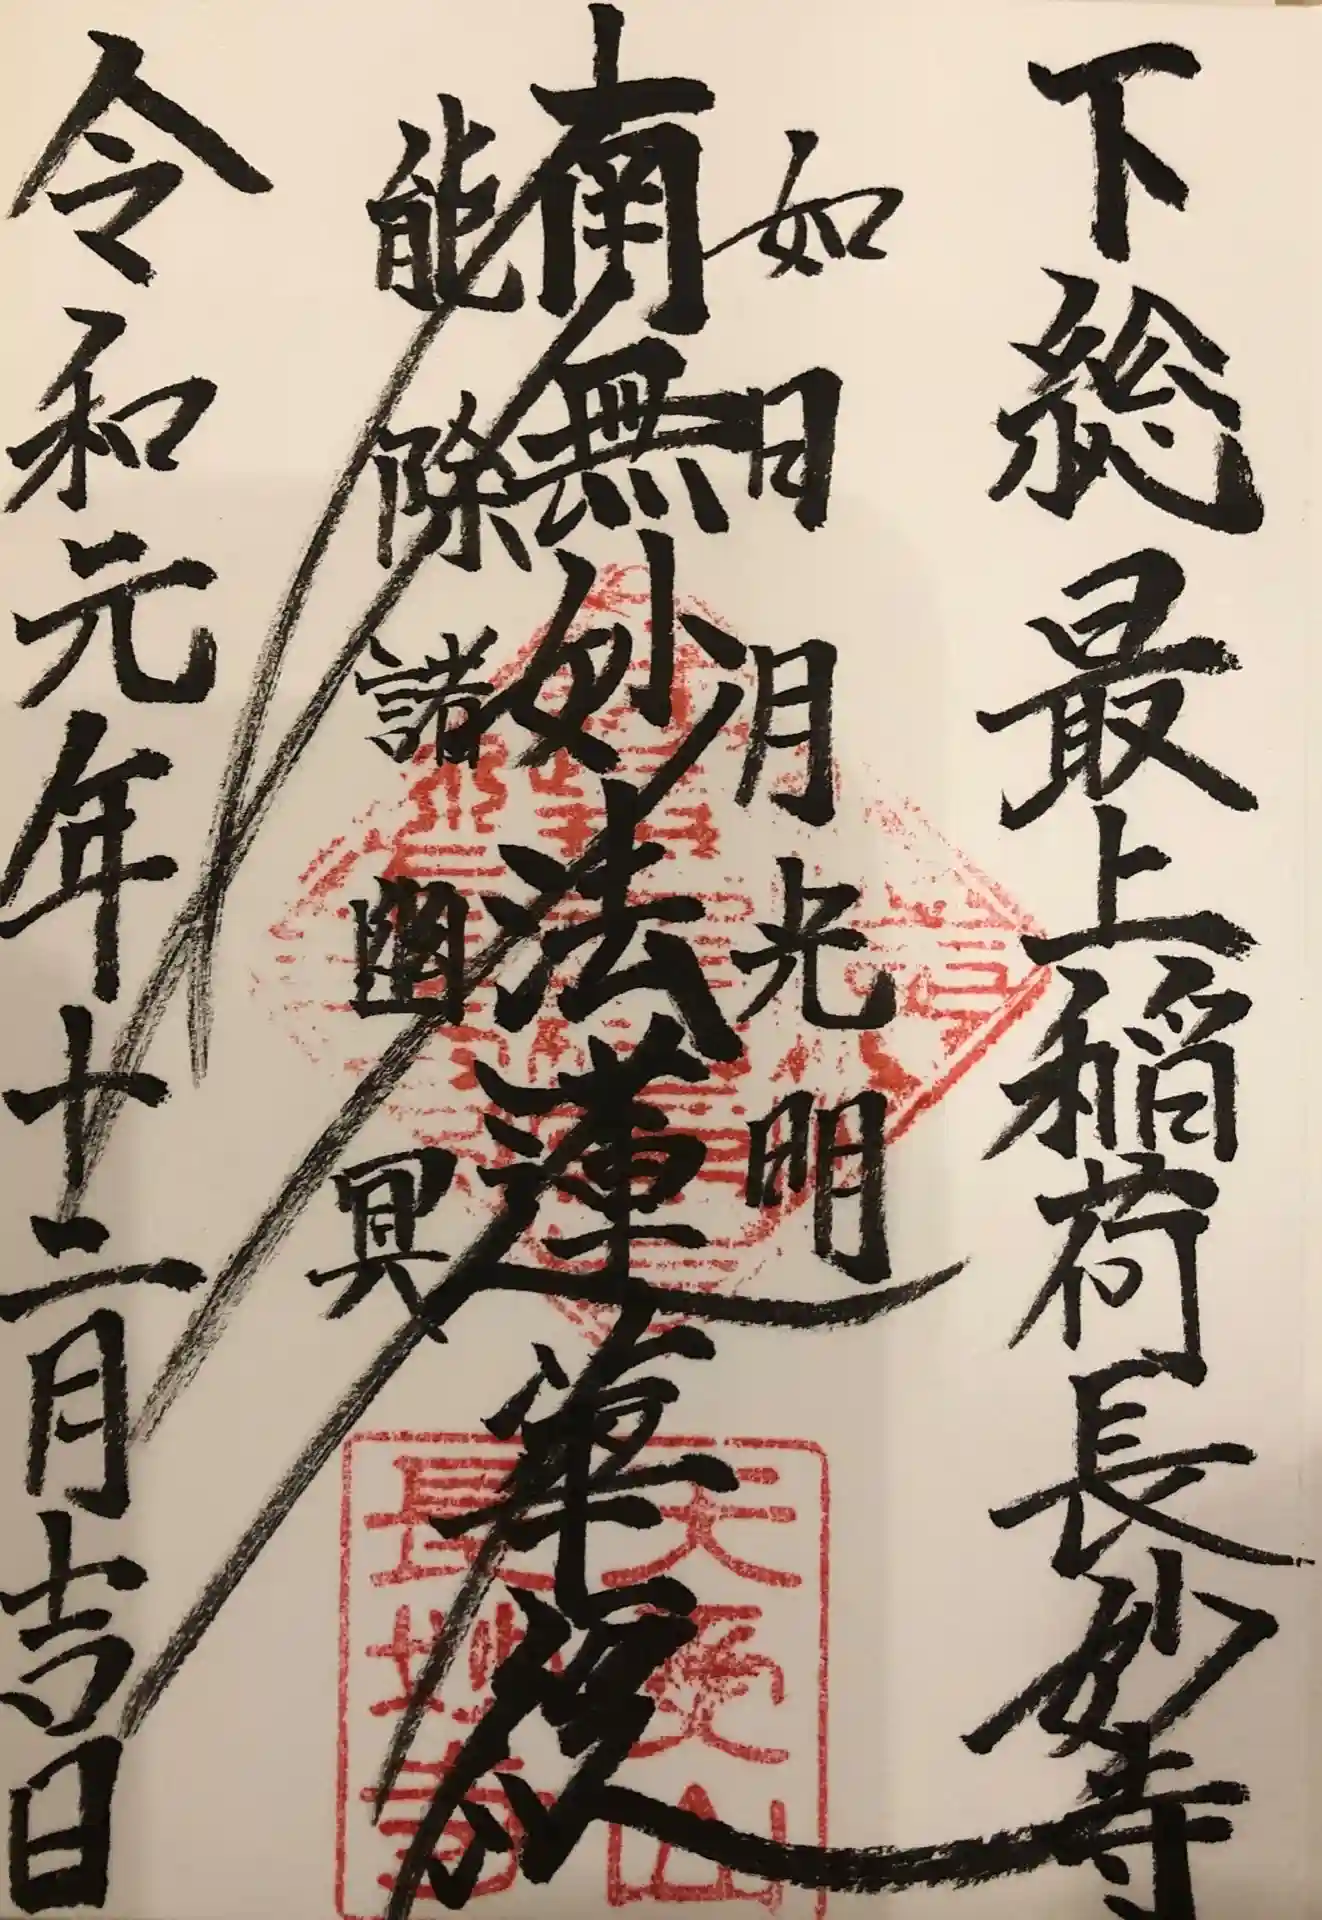 下総最上稲荷長妙寺
如日月光明
南無妙法蓮華経
能除諸幽冥
令和元年十二月吉日
長妙寺